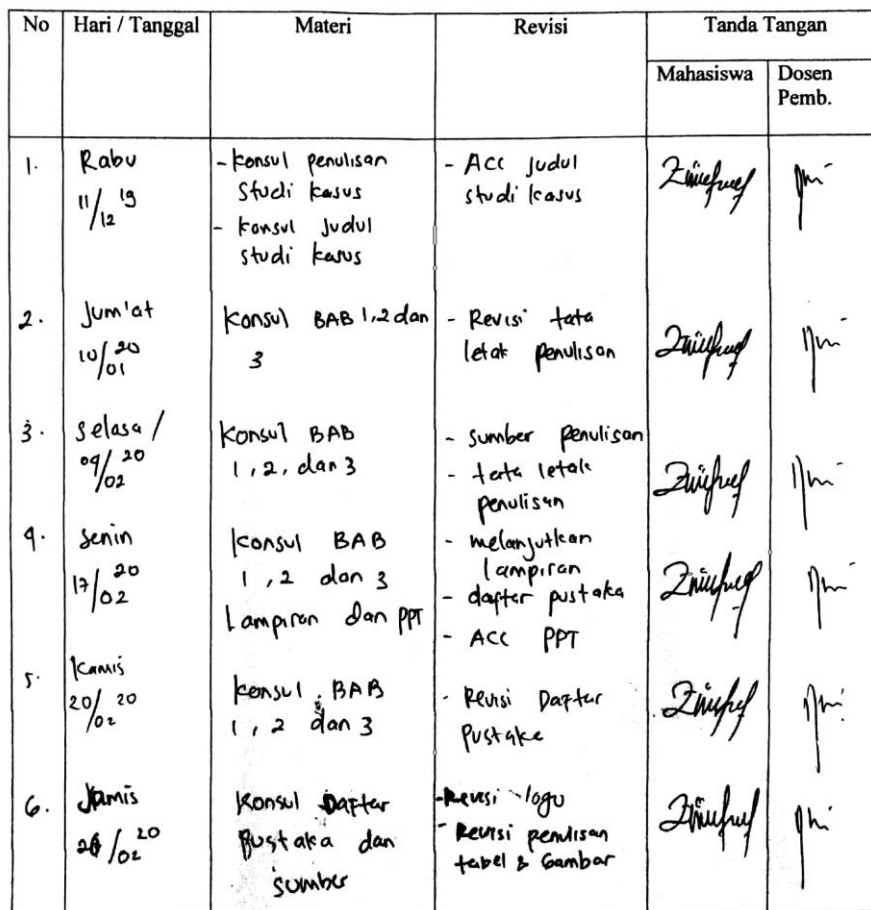 No Hari / Tanggal Materi Revisi Tanda Tangan
Mahasiswa Dosen Pemb.
1. Rabu 11/12 19
- Konsul penulisan
studi kasus
- Konsul Judul
studi kasus
- Acc Judul
studi kasus
2. Jum'at 10/01 20
Konsul BAB 1,2 dan
3
- Revisi tata
letak penulisan
3. Selasa / 09/02 20
Konsul BAB
1, 2, dan 3
- Sumber penulisan
- tata letak
penulisan
4. Senin 17/02 20
Konsul BAB
1, 2 dan 3
Lampiran dan PPT
- melanjutkan
lampiran
- daftar pustaka
- ACC PPT
5. Kamis 20/02 20
Konsul BAB
1, 2 dan 3
- Revisi Daftar
Pustaka
6. Kamis /02 20
Konsul Daftar
Pustaka dan
sumber
- Revisi logo
- Revisi penulisan
tabel & Gambar